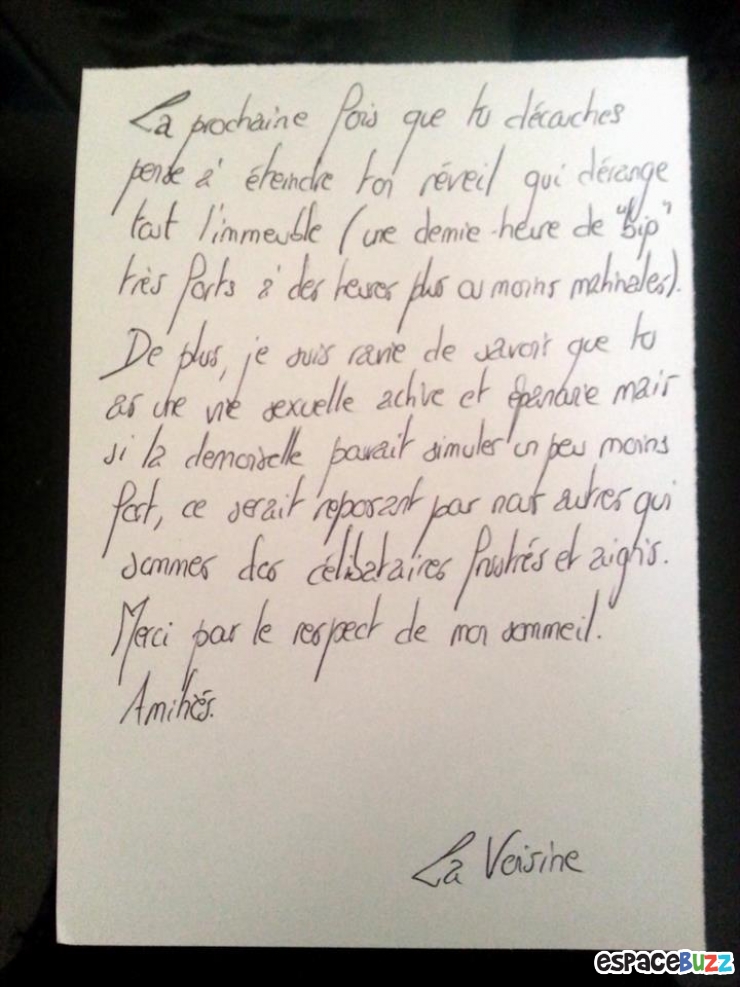 La prochaine fois que tu découches
pense à éteindre ton réveil qui dérange
tout l'immeuble (une demie-heure de "bip"
très forts à des heures plus ou moins matinales).
De plus, je suis ravie de savoir que tu
as une vie sexuelle active et épanouie mais
si la demoiselle pouvait simuler un peu moins
fort, ce serait reposant pour nous autres qui
sommes des célibataires frustrés et aigris.
Merci pour le respect de mon sommeil.
Amitiés.
La Voisine
espaceBUZZ